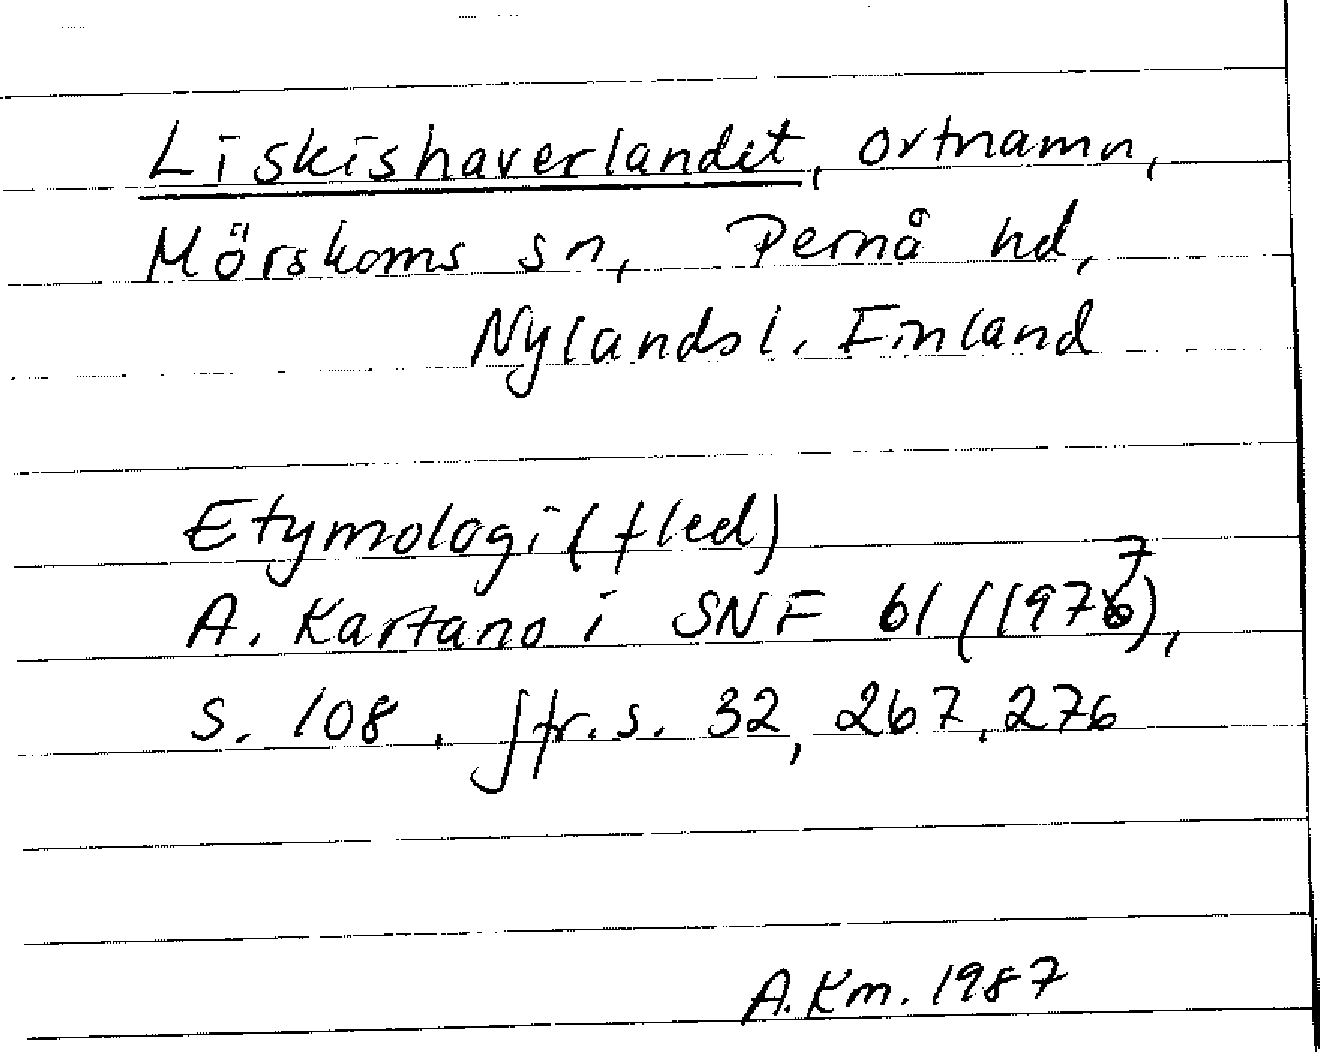 Liskishaverlandet, ortnamn,
Mörskoms sn, Pernå hd,
Nylands l. Finland
Etymologi (fled)
A. Kartano i SNF 61 (1977),
s. 108. Jfr. s. 32, 267, 276
A.Km. 1987